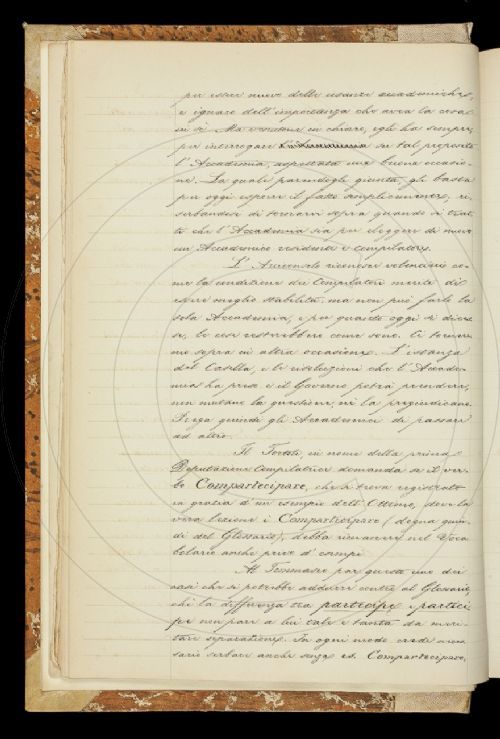 per esser nuovo delle usanze accademiche,
e ignaro dell'importanza che avea la cosa
in sè. Ma venutone in chiaro, egli ha sempre,
per interrogare su tal proposito
l'Accademia, aspettata una buona occasio-
ne. La quale parendogli giunta, gli basta
per oggi esporre il fatto semplicemente, ri-
serbandosi di tornarvi sopra quando si trat-
ti che l'Accademia sia per eleggere di nuovo
un Accademico residente e compilatore.
L'Arciconsolo riconosce volentieri co-
me la condizione dei Compilatori meriti di
essere meglio stabilita, ma non può farlo la
sola Accademia, e per quanto oggi si dices-
se, le cose resterebbero come sono. Ci tornere-
mo sopra in altra occasione. L'istanza
del Casella, e le risoluzioni che l'Accade-
mia ha prese e il Governo potrà prendere,
non mutano la questione, nè la pregiudicano.
Prega quindi gli Accademici di passare
ad altro.
Il Tortoli, in nome della prima
Deputazione Compilatrice domanda se il ver-
bo Compartecipare, che si trova registrato
in grazia d'un esempio dell'Ottimo, dove la
vera lezione è Comparticipare (degna quin-
di del Glossario), debba rimanere nel Voca
bolario anche privo d'esempi
Al Tommaseo par questo uno dei
casi che si potrebbe addurre contro al Glossario,
chè la differenza tra partecipe e partici
pe non pare a lui tale e tanta da meri-
tare separazione. In ogni modo crede neces-
sario serbare anche senza es. Compartecipare,